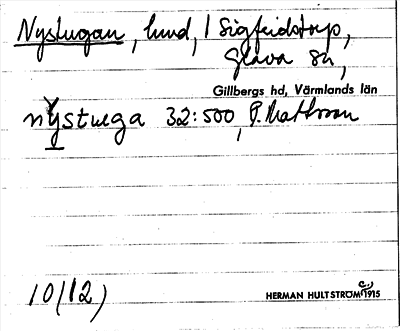 Nystugan, lund, / Sigfridstorp,
Glava sn,
Gillbergs hd, Värmlands län
nystuga 32:500, P. Mattsson
10/12)
HERMAN HULTSTRÖM 1915